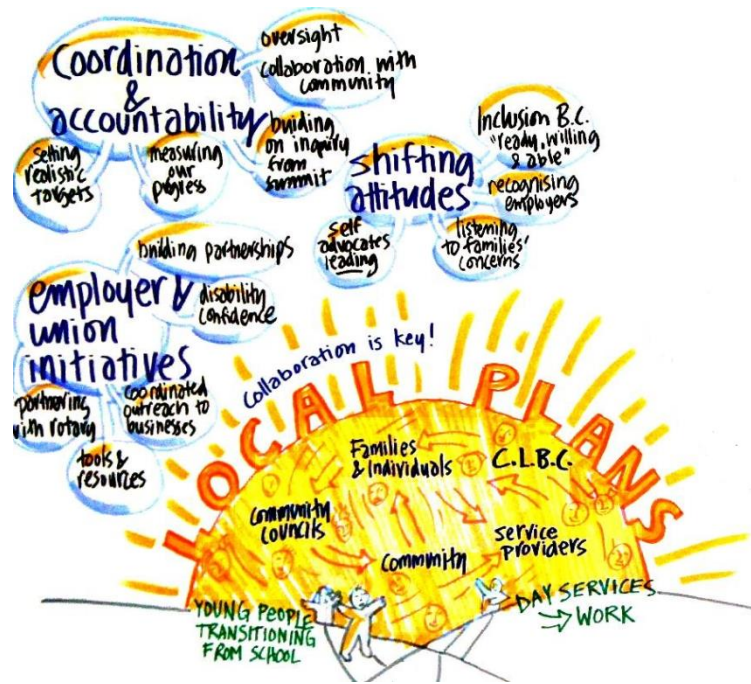 coordination
&
accountability
oversight
collaboration with
community
setting
realistic
targets
measuring
our
progress
buiding
on inquiry
from
summit
shifting
attitudes
Inclusion B.C.
"ready, willing
& able"
recognising
employers
self
advocates
leading
listening
to families'
concerns
employer &
union
initiatives
building partnerships
disability
confidence
partnering
with rotary
coordinated
outreach to
businesses
tools &
resources
Collaboration is key!
LOCAL PLANS
Families
& individuals
C.L.B.C.
Community
Councils
Community
Service
providers
YOUNG PEOPLE
TRANSITIONING
FROM SCHOOL
DAY SERVICES
→ WORK